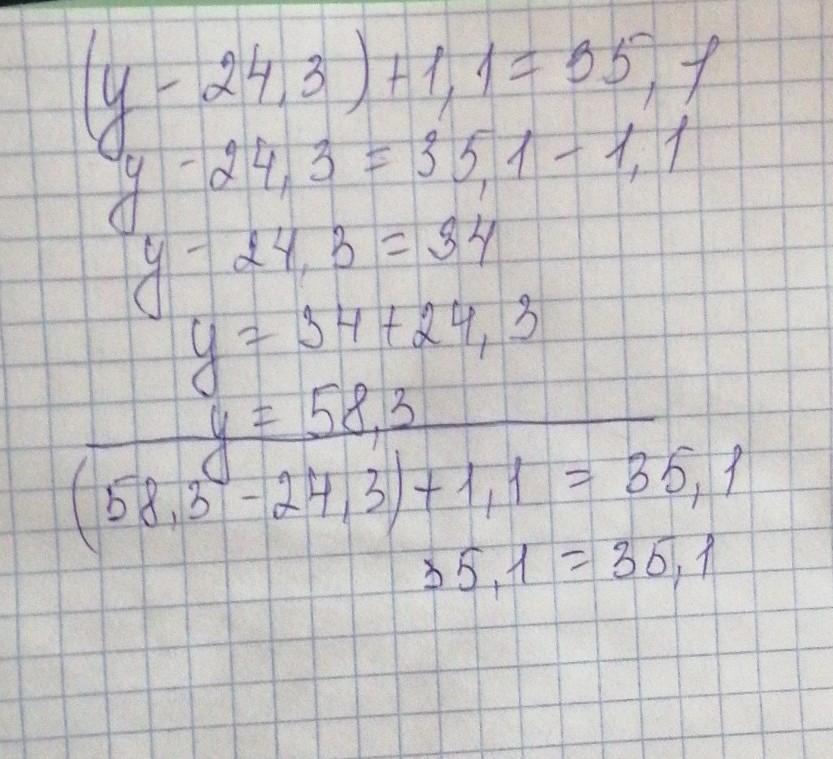 (y - 24,3) + 1,1 = 35,1
y - 24,3 = 35,1 - 1,1
y - 24,3 = 34
y = 34 + 24,3
y = 58,3
(58,3 - 24,3) + 1,1 = 35,1
35,1 = 35,1